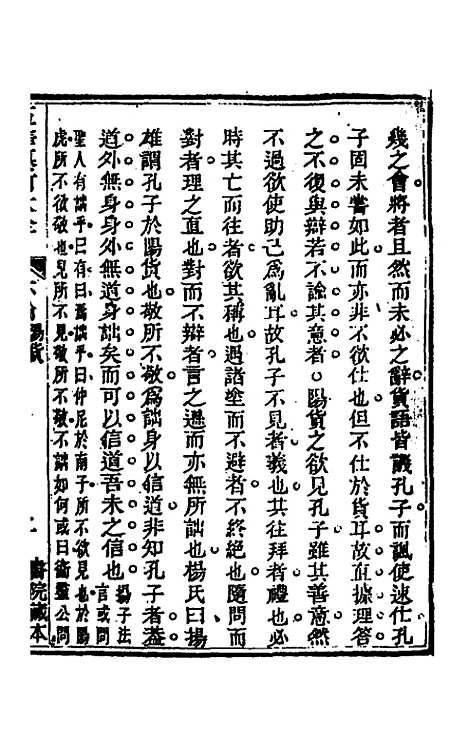 幾之會將者且然而未必之辭貨語皆譏孔子而諷使速仕孔
子固未嘗如此而亦非不欲仕也但不仕於貨耳故直據理答
之不復與辯若不諭其意者○陽貨之欲見孔子雖其善意然
不過欲使助己為亂耳故孔子不見者義也其往拜者禮也必
時其亡而往者欲其稱也遇諸塗而不避者不終絕也隨問而
對者理之直也對而不辯者言之遜而亦無所詘也楊氏曰揚
雄謂孔子於陽貨也敬所不敬為詘身以信道非知孔子者蓋
道外無身身外無道身詘矣而可以信道吾未之信也
揚子法
言或問
聖人有詘乎曰有曰焉詘乎曰仲尼於南子所不欲見也於陽
虎所不欲敬也見所不見敬所不敬不詘如何或曰衛靈公問
陽貨
書院藏本